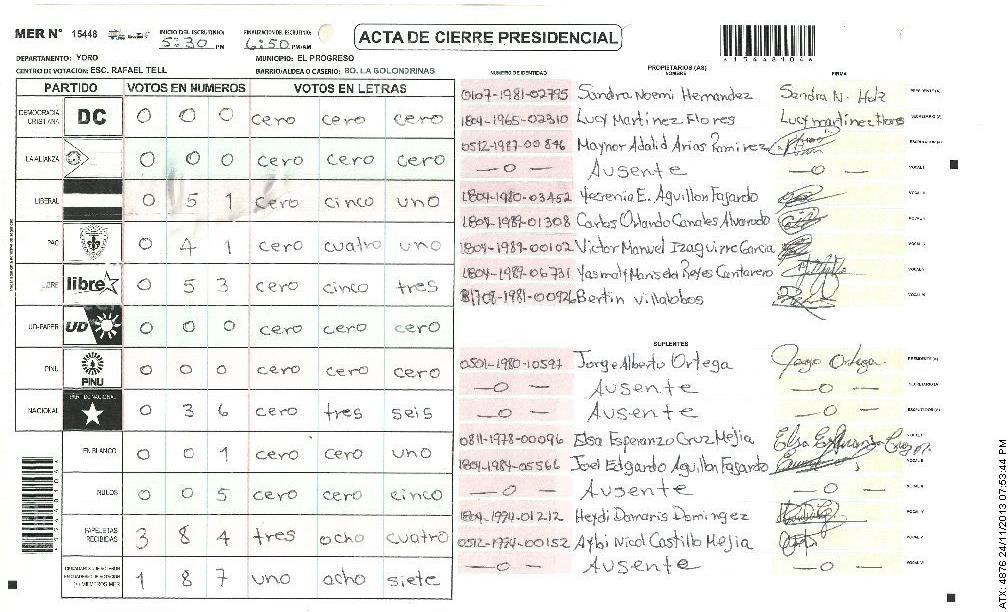 MER N° 15448 INICIO DEL ESCRUTINIO: 5:30 PM FINALIZACION DEL ESCRUTINIO: 6:50 PM/AM
ACTA DE CIERRE PRESIDENCIAL
15448104
DEPARTAMENTO: YORO MUNICIPIO: EL PROGRESO
CENTRO DE VOTACION: ESC. RAFAEL TELL BARRIO/ALDEA O CASERIO: BO. LA GOLONDRINAS
PARTIDO VOTOS EN NUMEROS VOTOS EN LETRAS
DEMOCRACIA CRISTIANA DC 0 0 0 cero cero cero
LA ALIANZA 0 0 0 cero cero cero
LIBERAL 0 5 1 cero cinco uno
PAC 0 4 1 cero cuatro uno
LIBRE libre 0 5 3 cero cinco tres
UD-FAPER UD 0 0 0 cero cero cero
PINU PINU 0 0 0 cero cero cero
NACIONAL PARTIDO NACIONAL 0 3 6 cero tres seis
EN BLANCO 0 0 1 cero cero uno
NULOS 0 0 5 cero cero cinco
PAPELETAS RECIBIDAS 3 8 4 tres ocho cuatro
1 8 7 uno ocho siete
NUMERO DE IDENTIDAD PROPIETARIOS (AS) NOMBRE FIRMA
0107-1981-02795 Sandra Noemi Hernandez Sandra N. Hdz PRESIDENTE (A)
1804-1965-02310 Lucy Martinez Flores Lucy martinez flores SECRETARIO (A)
0512-1987-00846 Maynor Adalid Arias Ramirez ESCRUTADOR (A)
— 0 — Ausente — 0 — VOCAL I
1804-1980-03452 Yesenia E. Aguillon Fajardo VOCAL II
1804-1989-01308 Carlos Orlando Canales Alvarado
1804-1989-00102 Victor Manuel Izaguirre Garcia
1804-1987-06731 Yasmaly Marisela Reyes Cantarero VOCAL V
1708-1981-00926 Bertin Villalobos VOCAL VI
SUPLENTES
0501-1980-10597 Jorge Alberto Ortega Jorge Ortega PRESIDENTE (A)
— 0 — Ausente — 0 — SECRETARIO (A)
— 0 — Ausente — 0 — ESCRUTADOR (A)
0811-1978-00096 Elsa Esperanza Cruz Mejia
1804-1984-05566 Joel Edgardo Aguillon Fajardo VOCAL II
— 0 — Ausente — 0 —
1804-1994-01212 Heydi Damaris Dominguez
0512-1974-00152 Aybi Nicol Castillo Mejia VOCAL V
— 0 — Ausente — 0 — VOCAL VI
ATX: 4876 24/11/2013 07:53:44 PM